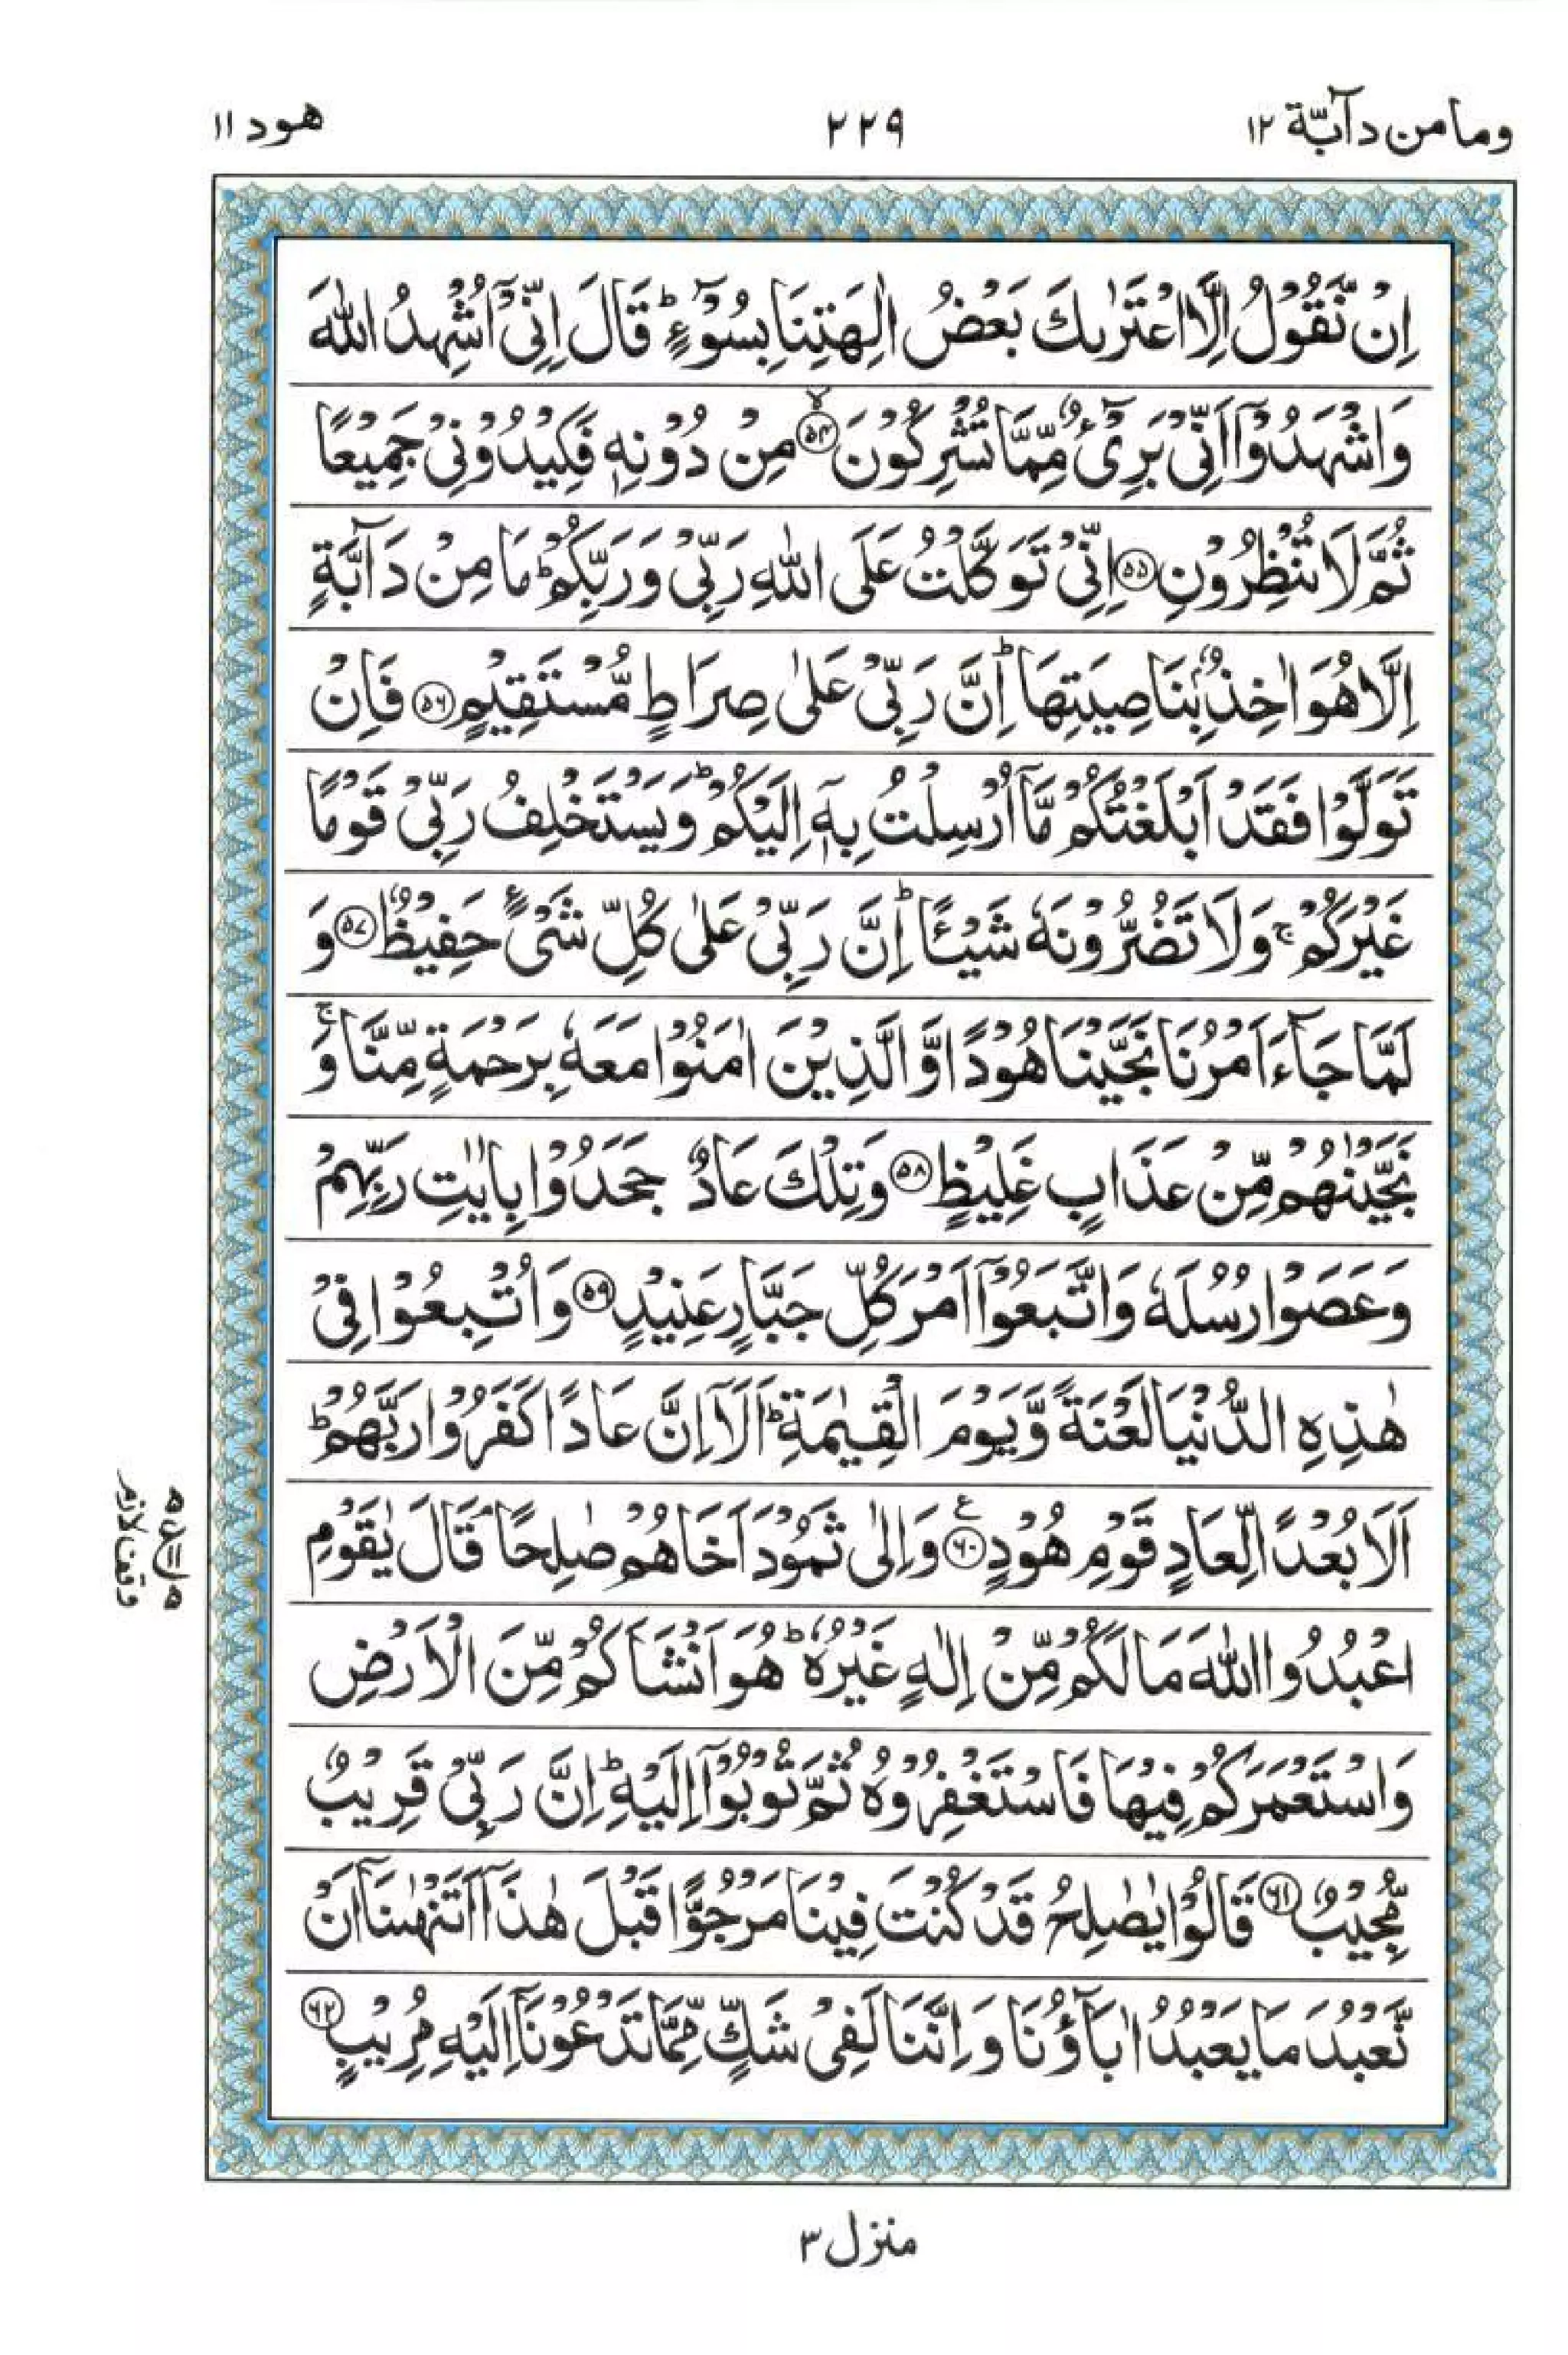 وما من دآبّة ١٢
٢٢٩
هود ١١
اِنْ نَّقُوْلُ اِلَّا اعْتَرٰىكَ بَعْضُ اٰلِهَتِنَا بِسُوْٓءٍ ؕ قَالَ اِنِّیْۤ اُشْهِدُ اللّٰهَ
وَاشْهَدُوْۤا اَنِّیْ بَرِیْٓءٌ مِّمَّا تُشْرِكُوْنَ ۙ﴿۵۴﴾ مِنْ دُوْنِهٖ فَكِیْدُوْنِیْ جَمِیْعًا
ثُمَّ لَا تُنْظِرُوْنِ ﴿۵۵﴾ اِنِّیْ تَوَكَّلْتُ عَلَی اللّٰهِ رَبِّیْ وَرَبِّكُمْ ؕ مَا مِنْ دَآبَّةٍ
اِلَّا هُوَ اٰخِذٌۢ بِنَاصِیَتِهَا ؕ اِنَّ رَبِّیْ عَلٰی صِرَاطٍ مُّسْتَقِیْمٍ ﴿۵۶﴾ فَاِنْ
تَوَلَّوْا فَقَدْ اَبْلَغْتُكُمْ مَّاۤ اُرْسِلْتُ بِهٖۤ اِلَیْكُمْ ؕ وَیَسْتَخْلِفُ رَبِّیْ قَوْمًا
غَیْرَكُمْ ۚ وَلَا تَضُرُّوْنَهٗ شَیْـًٔا ؕ اِنَّ رَبِّیْ عَلٰی كُلِّ شَیْءٍ حَفِیْظٌ ﴿۵۷﴾ وَ
لَمَّا جَآءَ اَمْرُنَا نَجَّیْنَا هُوْدًا وَّالَّذِیْنَ اٰمَنُوْا مَعَهٗ بِرَحْمَةٍ مِّنَّا ۚ وَ
نَجَّیْنٰهُمْ مِّنْ عَذَابٍ غَلِیْظٍ ﴿۵۸﴾ وَتِلْكَ عَادٌ جَحَدُوْا بِاٰیٰتِ رَبِّهِمْ
وَعَصَوْا رُسُلَهٗ وَاتَّبَعُوْۤا اَمْرَ كُلِّ جَبَّارٍ عَنِیْدٍ ﴿۵۹﴾ وَاُتْبِعُوْا فِیْ
هٰذِهِ الدُّنْیَا لَعْنَةً وَّیَوْمَ الْقِیٰمَةِ ؕ اَلَاۤ اِنَّ عَادًا كَفَرُوْا رَبَّهُمْ ؕ
اَلَا بُعْدًا لِّعَادٍ قَوْمِ هُوْدٍ ﴿۶۰﴾ ع وَاِلٰی ثَمُوْدَ اَخَاهُمْ صٰلِحًا ۘ قَالَ یٰقَوْمِ
اعْبُدُوا اللّٰهَ مَا لَكُمْ مِّنْ اِلٰهٍ غَیْرُهٗ ؕ هُوَ اَنْشَاَكُمْ مِّنَ الْاَرْضِ
وَاسْتَعْمَرَكُمْ فِیْهَا فَاسْتَغْفِرُوْهُ ثُمَّ تُوْبُوْۤا اِلَیْهِ ؕ اِنَّ رَبِّیْ قَرِیْبٌ
مُّجِیْبٌ ﴿۶۱﴾ قَالُوْا یٰصٰلِحُ قَدْ كُنْتَ فِیْنَا مَرْجُوًّا قَبْلَ هٰذَاۤ اَتَنْهٰىنَاۤ اَنْ
نَّعْبُدَ مَا یَعْبُدُ اٰبَآؤُنَا وَاِنَّنَا لَفِیْ شَكٍّ مِّمَّا تَدْعُوْنَاۤ اِلَیْهِ مُرِیْبٍ ﴿۶۲﴾
وقف لازم
منزل ٣